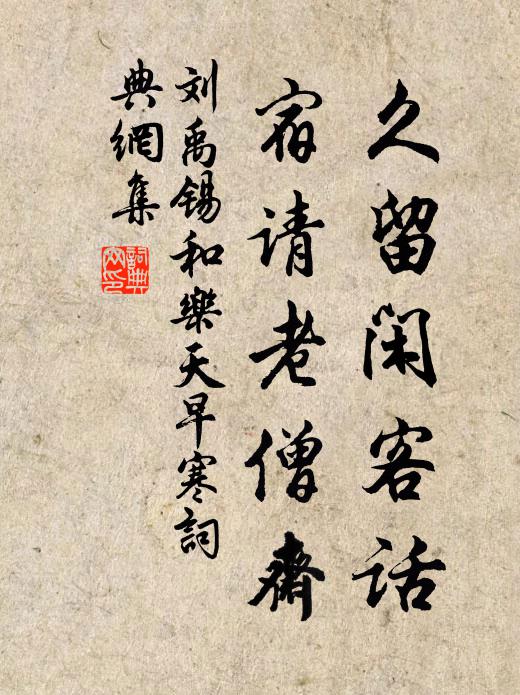 久留闲客话
宿请老僧斋
刘禹锡和樂天早寒詞
典網集
詞典
网印